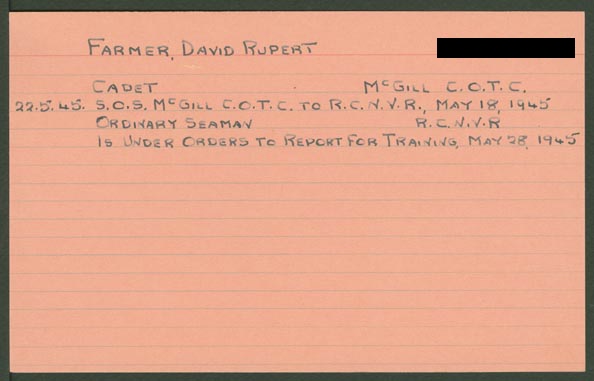 FARMER, DAVID RUPERT
CADET McGILL C.O.T.C.
22.5.45. S.O.S. McGILL C.O.T.C. TO R.C.N.V.R., MAY 18, 1945
ORDINARY SEAMAN R.C.N.V.R
IS UNDER ORDERS TO REPORT FOR TRAINING, MAY 28, 1945